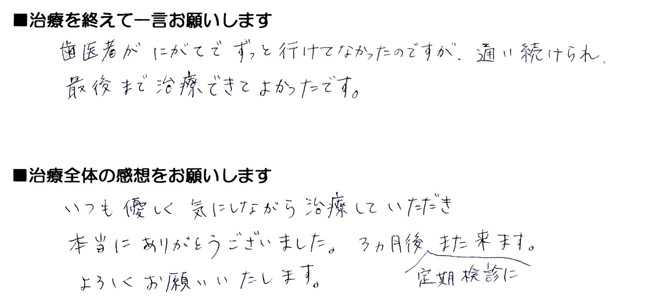 ■治療を終えて一言お願いします
歯医者が にがてで ずっと行けてなかったのですが、通い続けられ、
最後まで治療できてよかったです。
■治療全体の感想をお願いします
いつも優しく 気にしながら治療していただき
本当にありがとうございました。 3ヵ月後 また来ます。
定期検診に
よろしくお願いいたします。